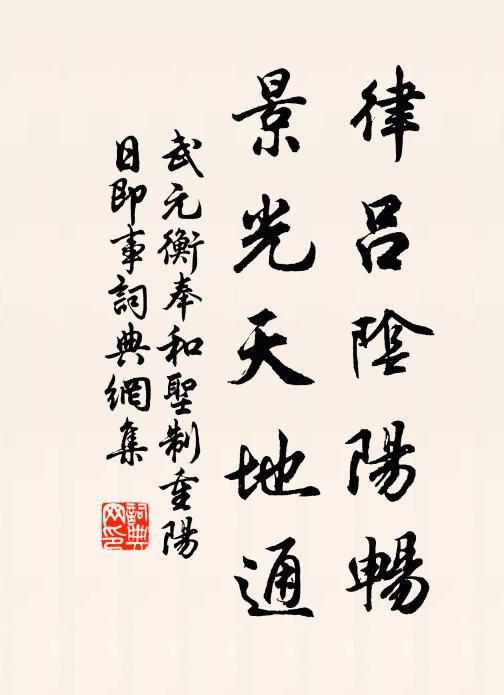 律呂陰陽暢
景光天地通
武元衡奉和聖制重陽
日即事詞典網集
詞典網印